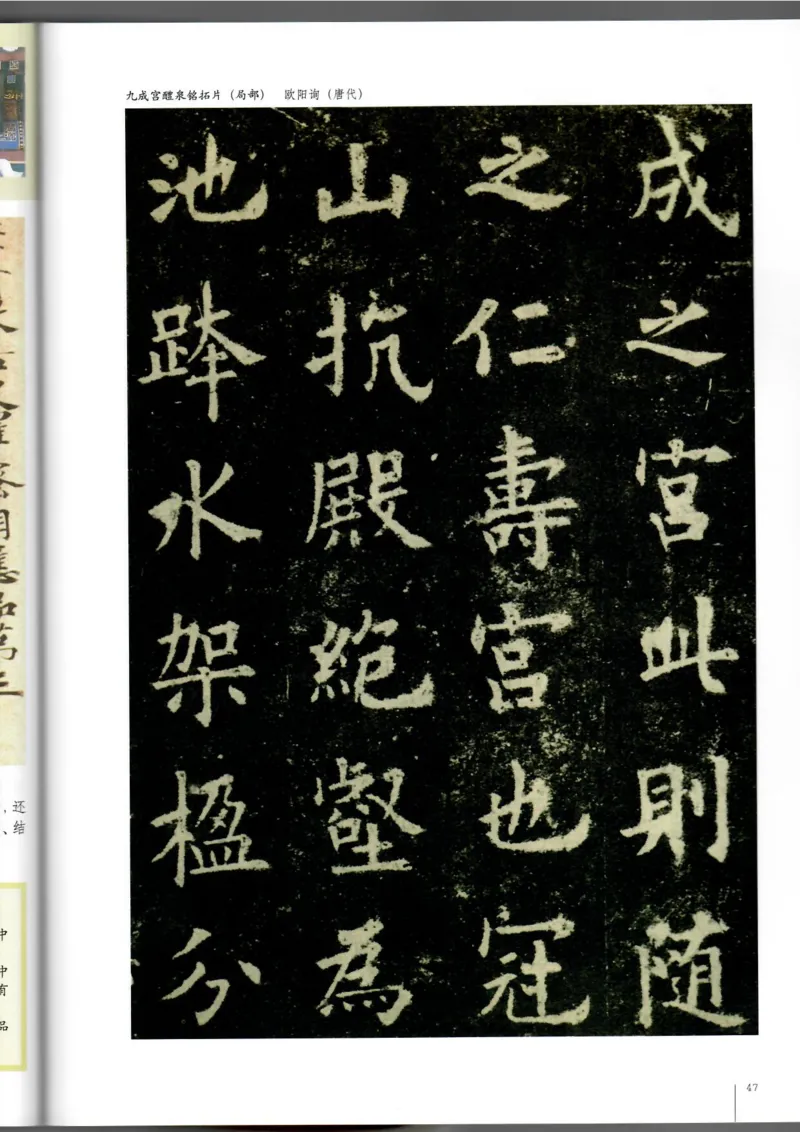 九成宫醴泉铭拓片（局部）　欧阳询（唐代）
成之宮此則随
之仁壽宮也冠
山抗殿絶壑為
池跨水架楹分
，还
、结
中
中
品
47